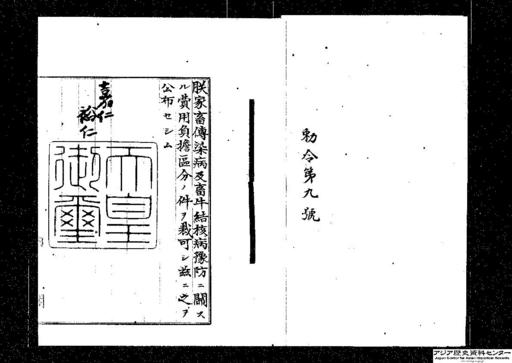 勅令第九號
朕家畜傳染病及畜牛結核病豫防ニ關ス
ル費用負擔區分ノ件ヲ裁可シ茲ニ之ヲ
公布セシム
嘉仁
裕仁
天皇
御璽
アジア歴史資料センター
Japan Center for Asian Historical Records